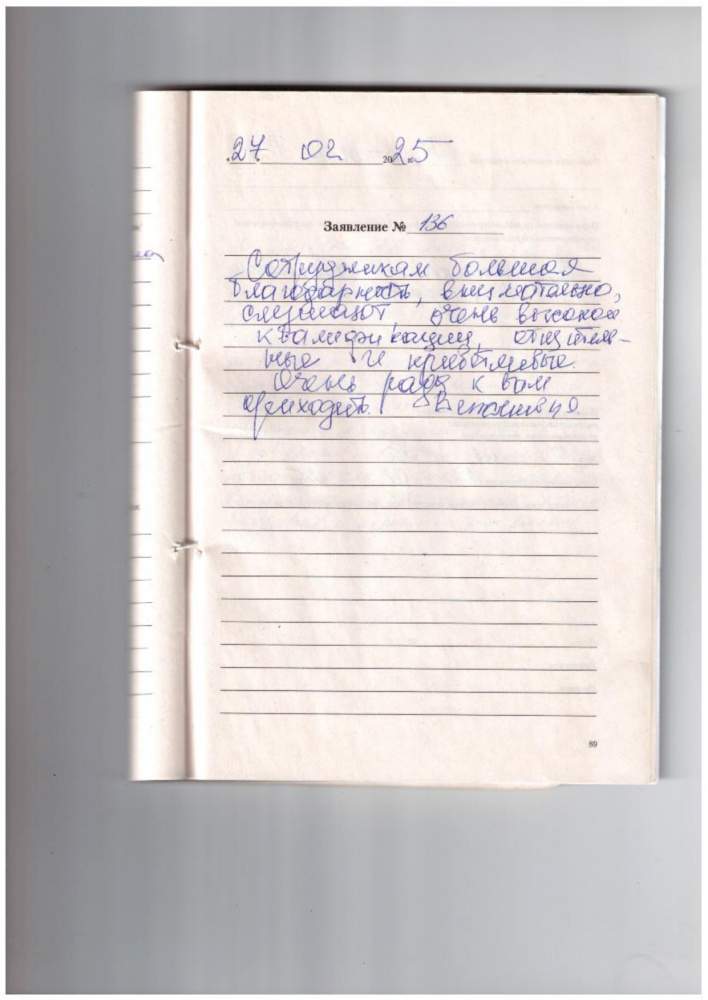 27 02 2025
Заявление № 136
Сотрудникам большая
благодарность, внимательно,
слушают, очень высокой
квалификации,
ные и приветливые.
Очень рады к вам
приходить.
89